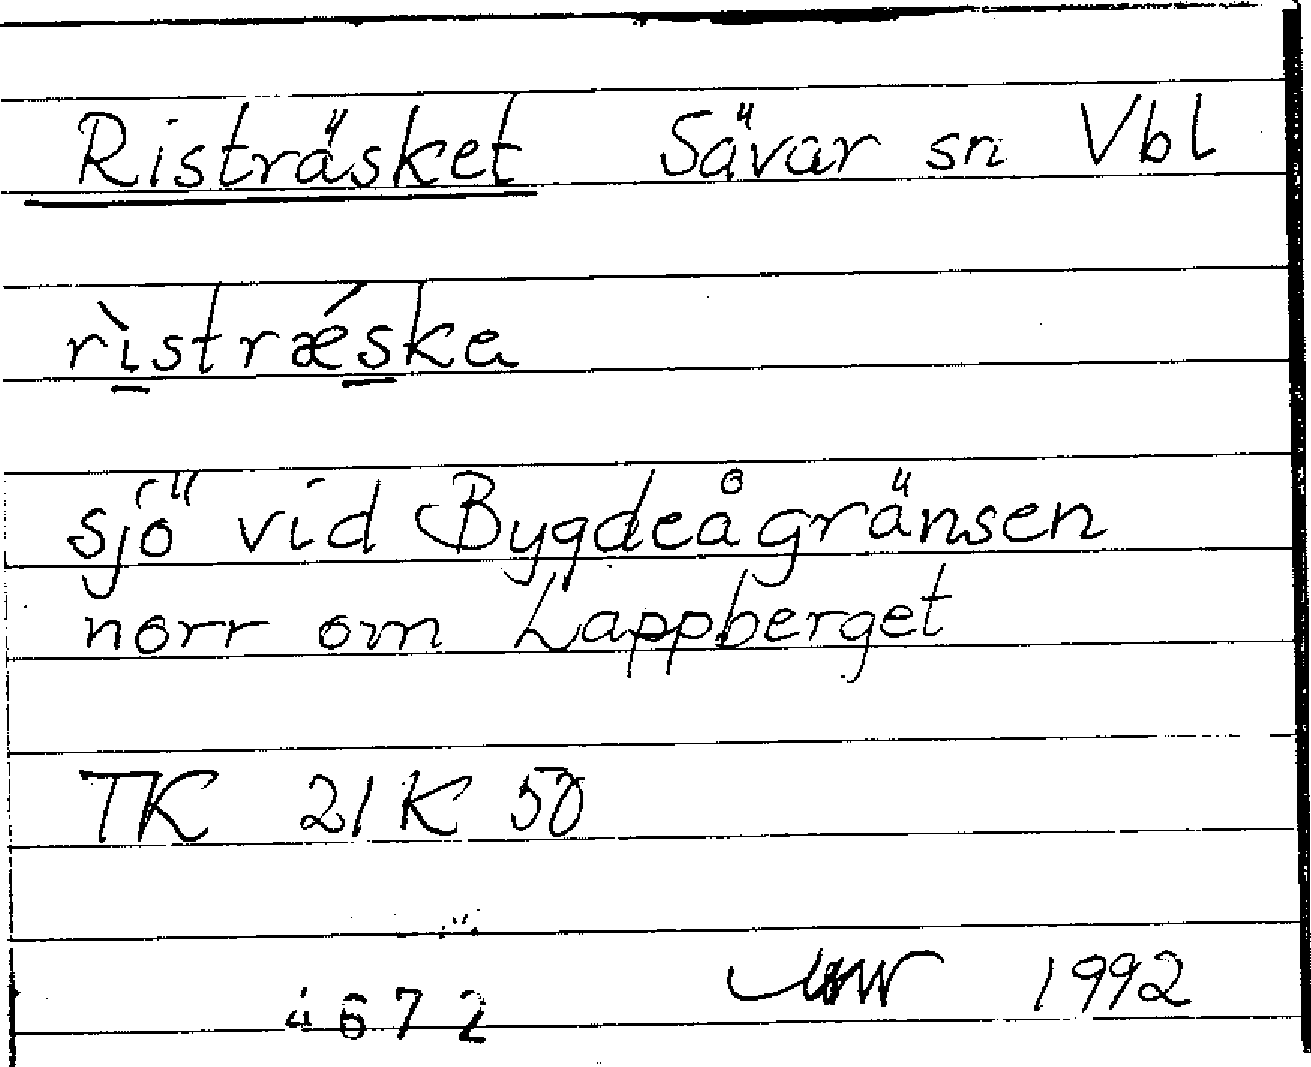 Risträsket Sävar sn Vbl
rìstrǽska
sjö vid Bygdeågränsen
norr om Lappberget
TK 21K 50
4672 1992